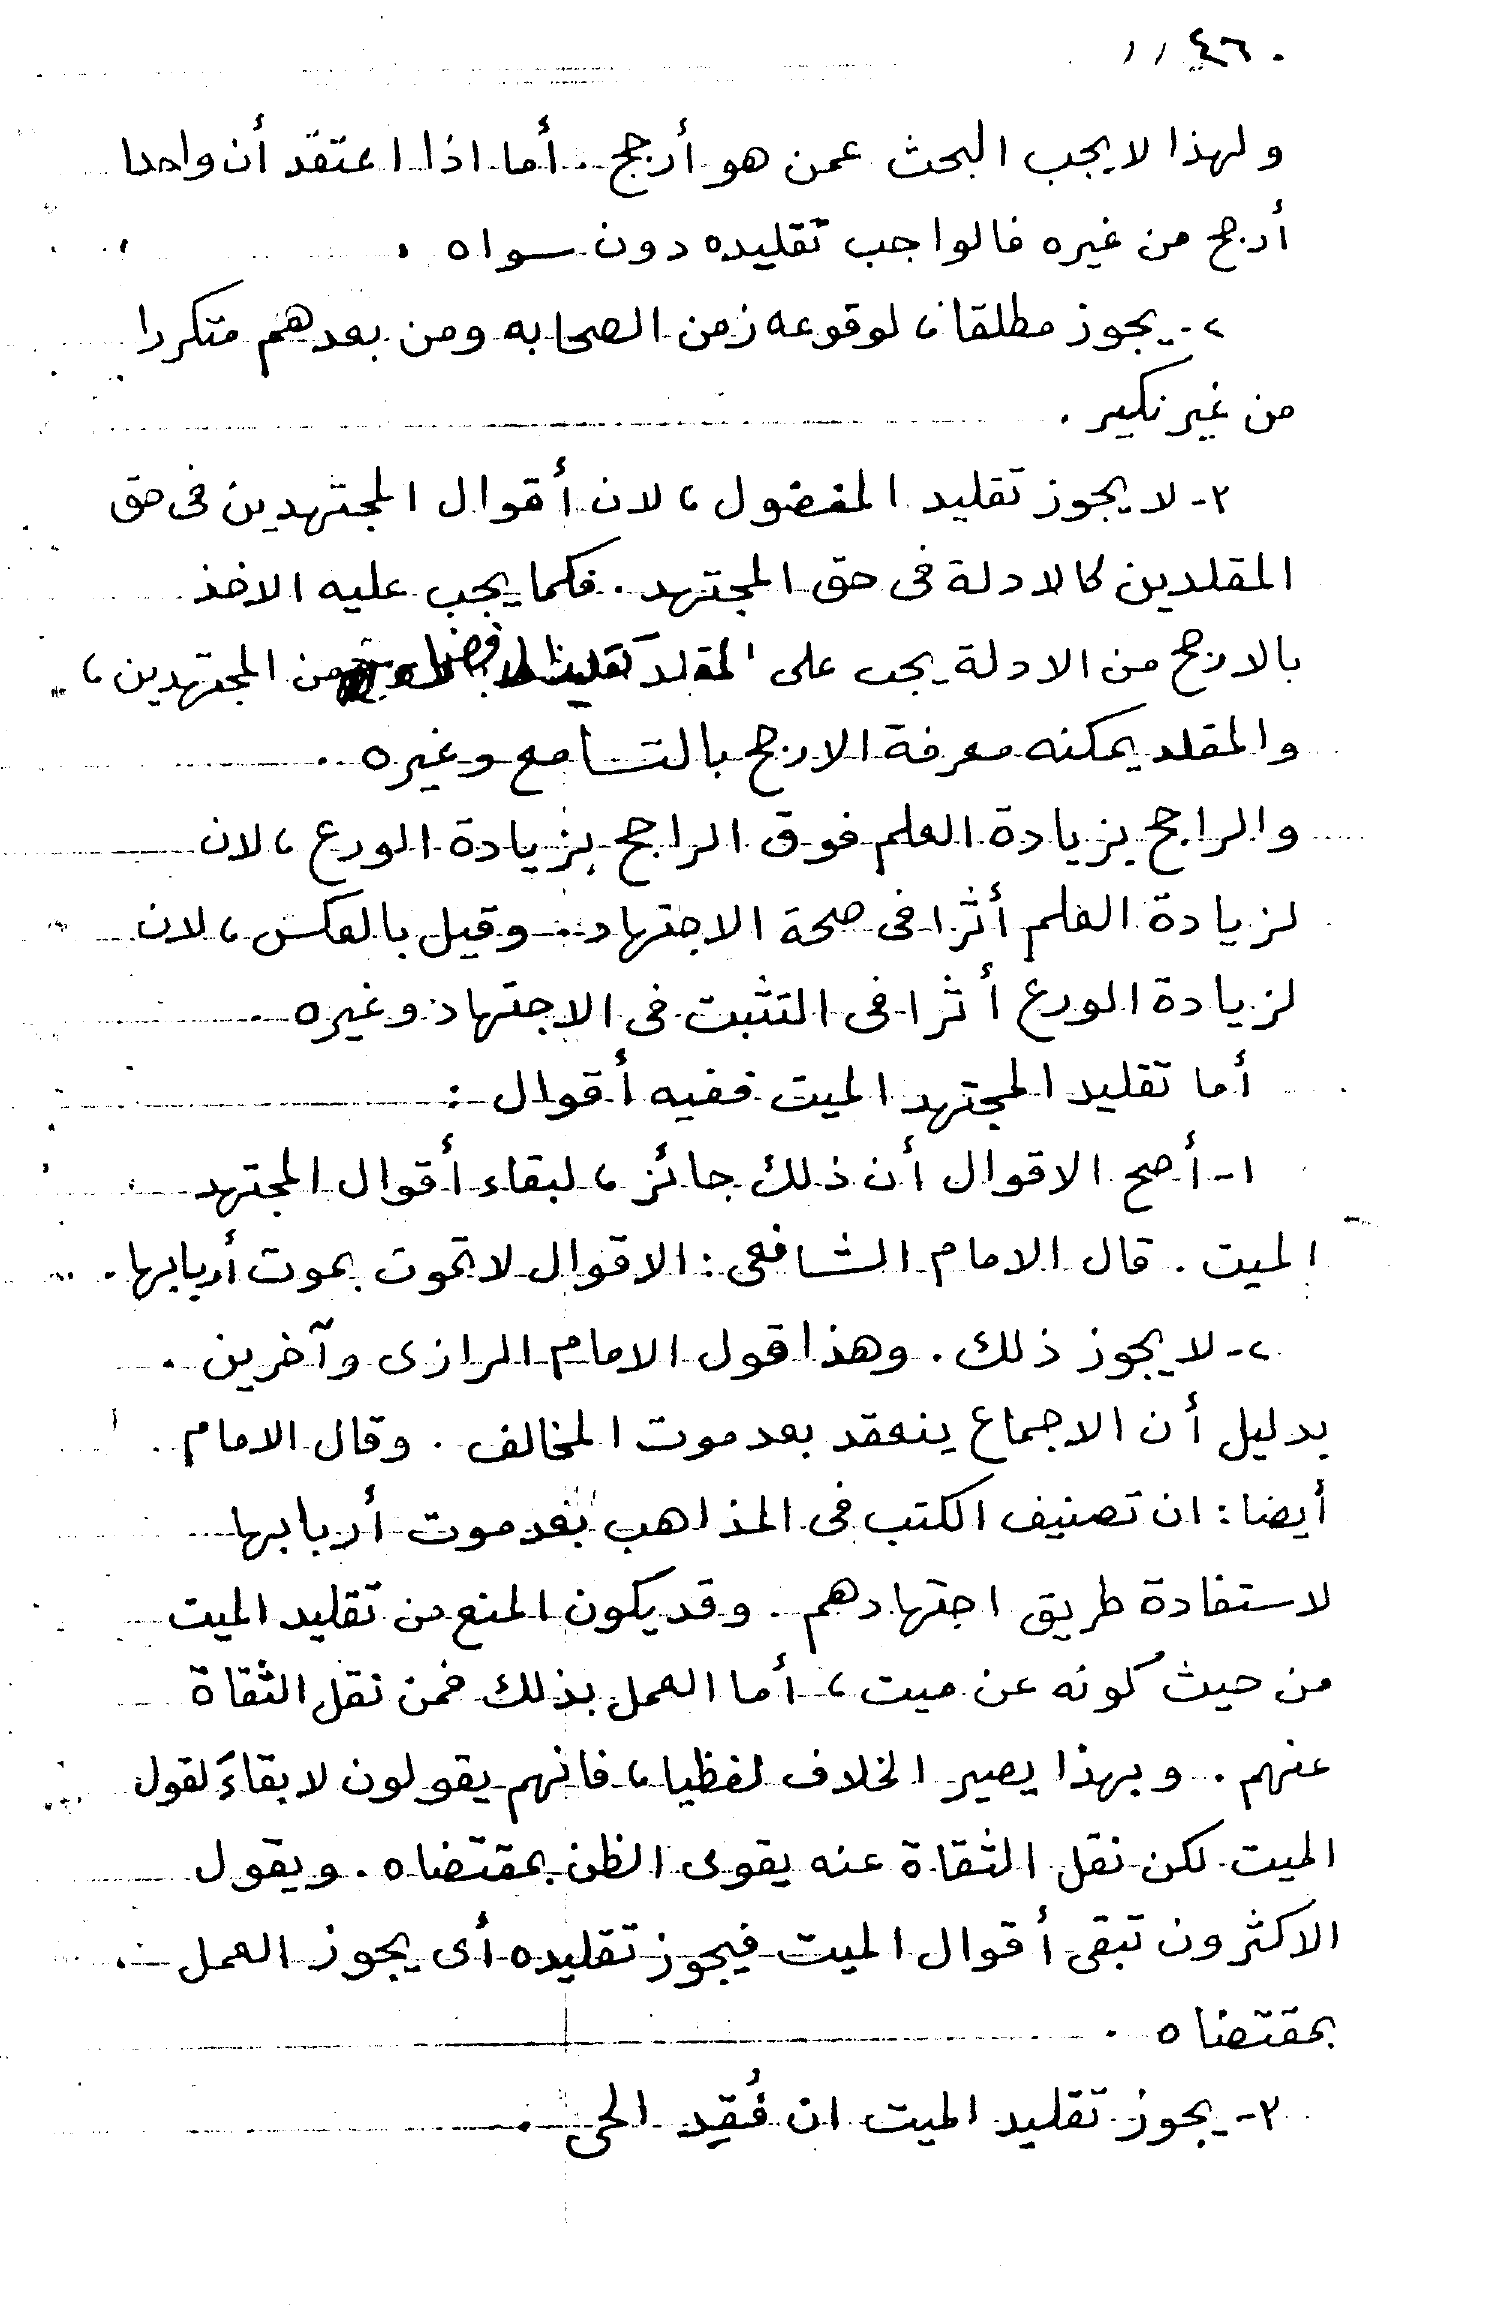 ٤٦٠
ولهذا لا يجب البحث عمن هو أرجح . أما اذا اعتقد أن واحدا
أرجح من غيره فالواجب تقليده دون سواه .
٢- يجوز مطلقا ، لوقوعه زمن الصحابه ومن بعدهم متكررا
من غير نكير .
٣- لا يجوز تقليد المفضول ، لان أقوال المجتهدين فى حق
المقلدين كالادلة فى حق المجتهد . فكما يجب عليه الاخذ
بالارجح من الادلة يجب على المقلد من المجتهدين ،
والمقلد يمكنه معرفة الارجح بالتسامع وغيره .
والراجح بزيادة العلم فوق الراجح بزيادة الورع ، لان
لزيادة العلم أثرا فى صحة الاجتهاد . وقيل بالعكس ، لان
لزيادة الورع أثرا فى التثبت فى الاجتهاد وغيره .
أما تقليد المجتهد الميت ففيه أقوال :
١- أصح الاقوال أن ذلك جائز ، لبقاء أقوال المجتهد
الميت . قال الامام الشافعى : الاقوال لا تموت بموت أربابها .
٢- لا يجوز ذلك . وهذا قول الامام الرازى وآخرين .
بدليل أن الاجماع ينعقد بعد موت المخالف . وقال الامام
أيضا : ان تصنيف الكتب فى المذاهب بعد موت أربابها
لاستفادة طريق اجتهادهم . وقد يكون المنع من تقليد الميت
من حيث كونه عن ميت ، أما العمل بذلك فمن نقل الثقاة
عنهم . وبهذا يصير الخلاف لفظيا ، فانهم يقولون لا بقاءَ لقول
الميت لكن نقل الثقاة عنه يقوى الظن بمقتضاه . ويقول
الاكثرون تبقى أقوال الميت فيجوز تقليده أى يجوز العمل
بمقتضاه .
٣- يجوز تقليد الميت ان فُقِد الحى .